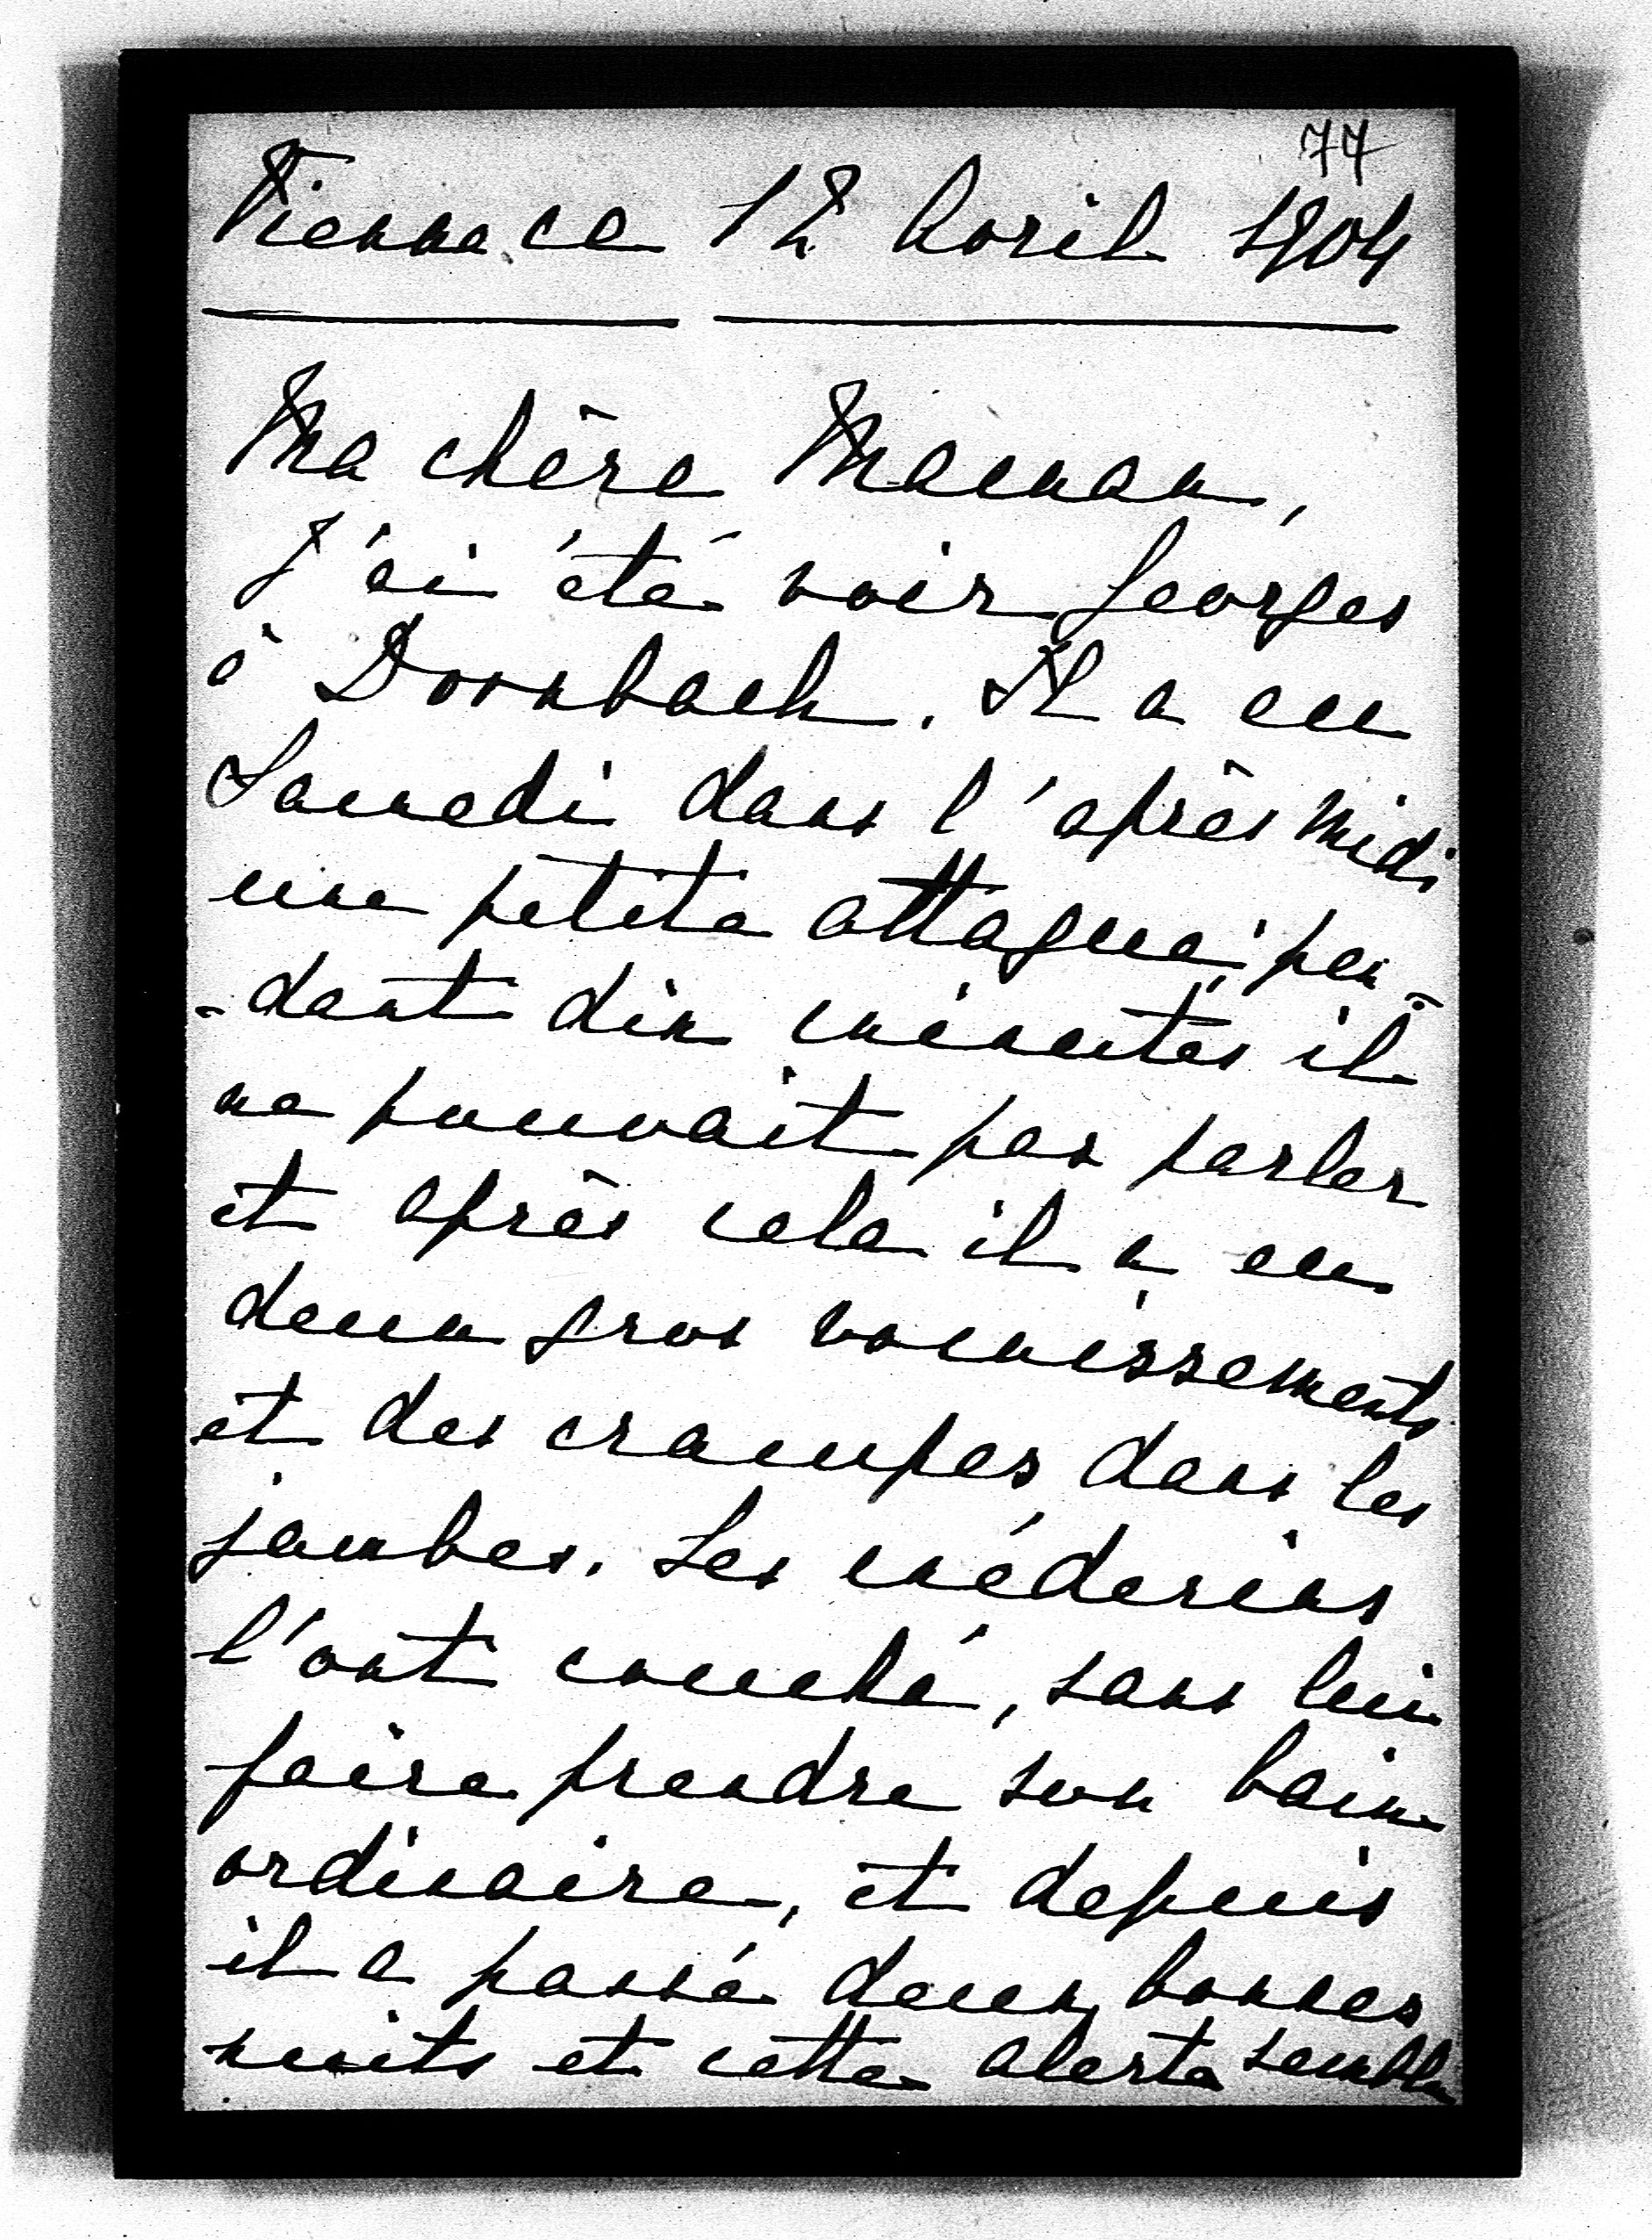 77
Vienne ce 12 Avril 1904
Ma chère Maman,
J'ai été voir Georges
à Dornbach. Il a eu
Samedi dans l'après midi
une petite attaque; pen-
-dant dix minutes il
ne pouvait pas parler
et après cela il a eu
deux gros vomissements
et des crampes dans les
jambes. Les médecins
l'ont couché, sans lui
faire prendre son bain
ordinaire, et depuis
il a passé deux bonnes
nuits et cette alerte semble